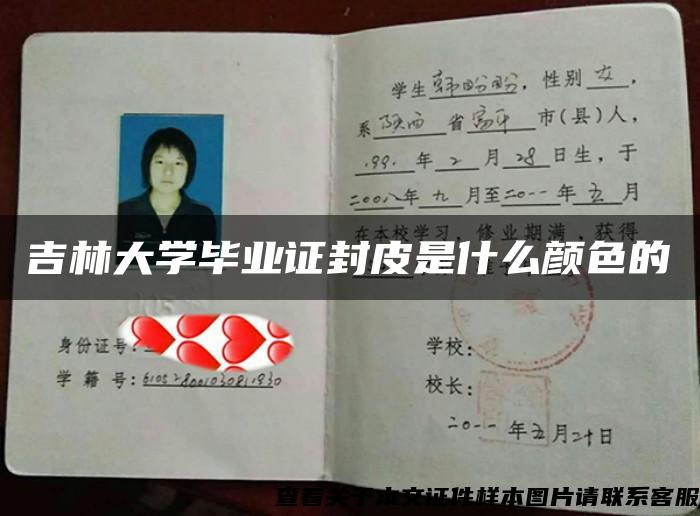 身份证号:
学 籍 号:
学生韩盼盼，性别女，
系陕西省富平市(县)人，
199 年2月28日生，于
二00八年九月至二0一一年五月
在本校学习，修业期满，获得
吉林大学毕业证封皮是什么颜色的
学校:
校长:
二0一一年五月二十日
查看关于本文证件样本图片请联系客服